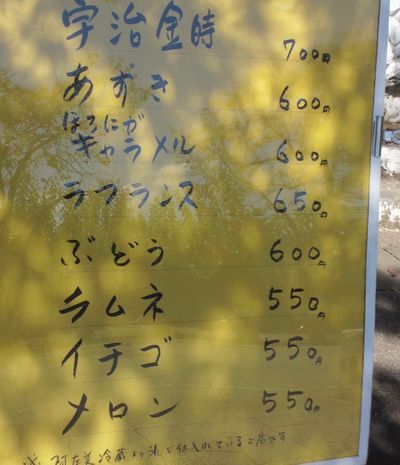 宇治金時 700円
あずき 600円
ほろにが
キャラメル 600円
ラフランス 650円
ぶどう 600円
ラムネ 550円
イチゴ 550円
メロン 550円
※阿左美冷蔵より氷を仕入れているお店です